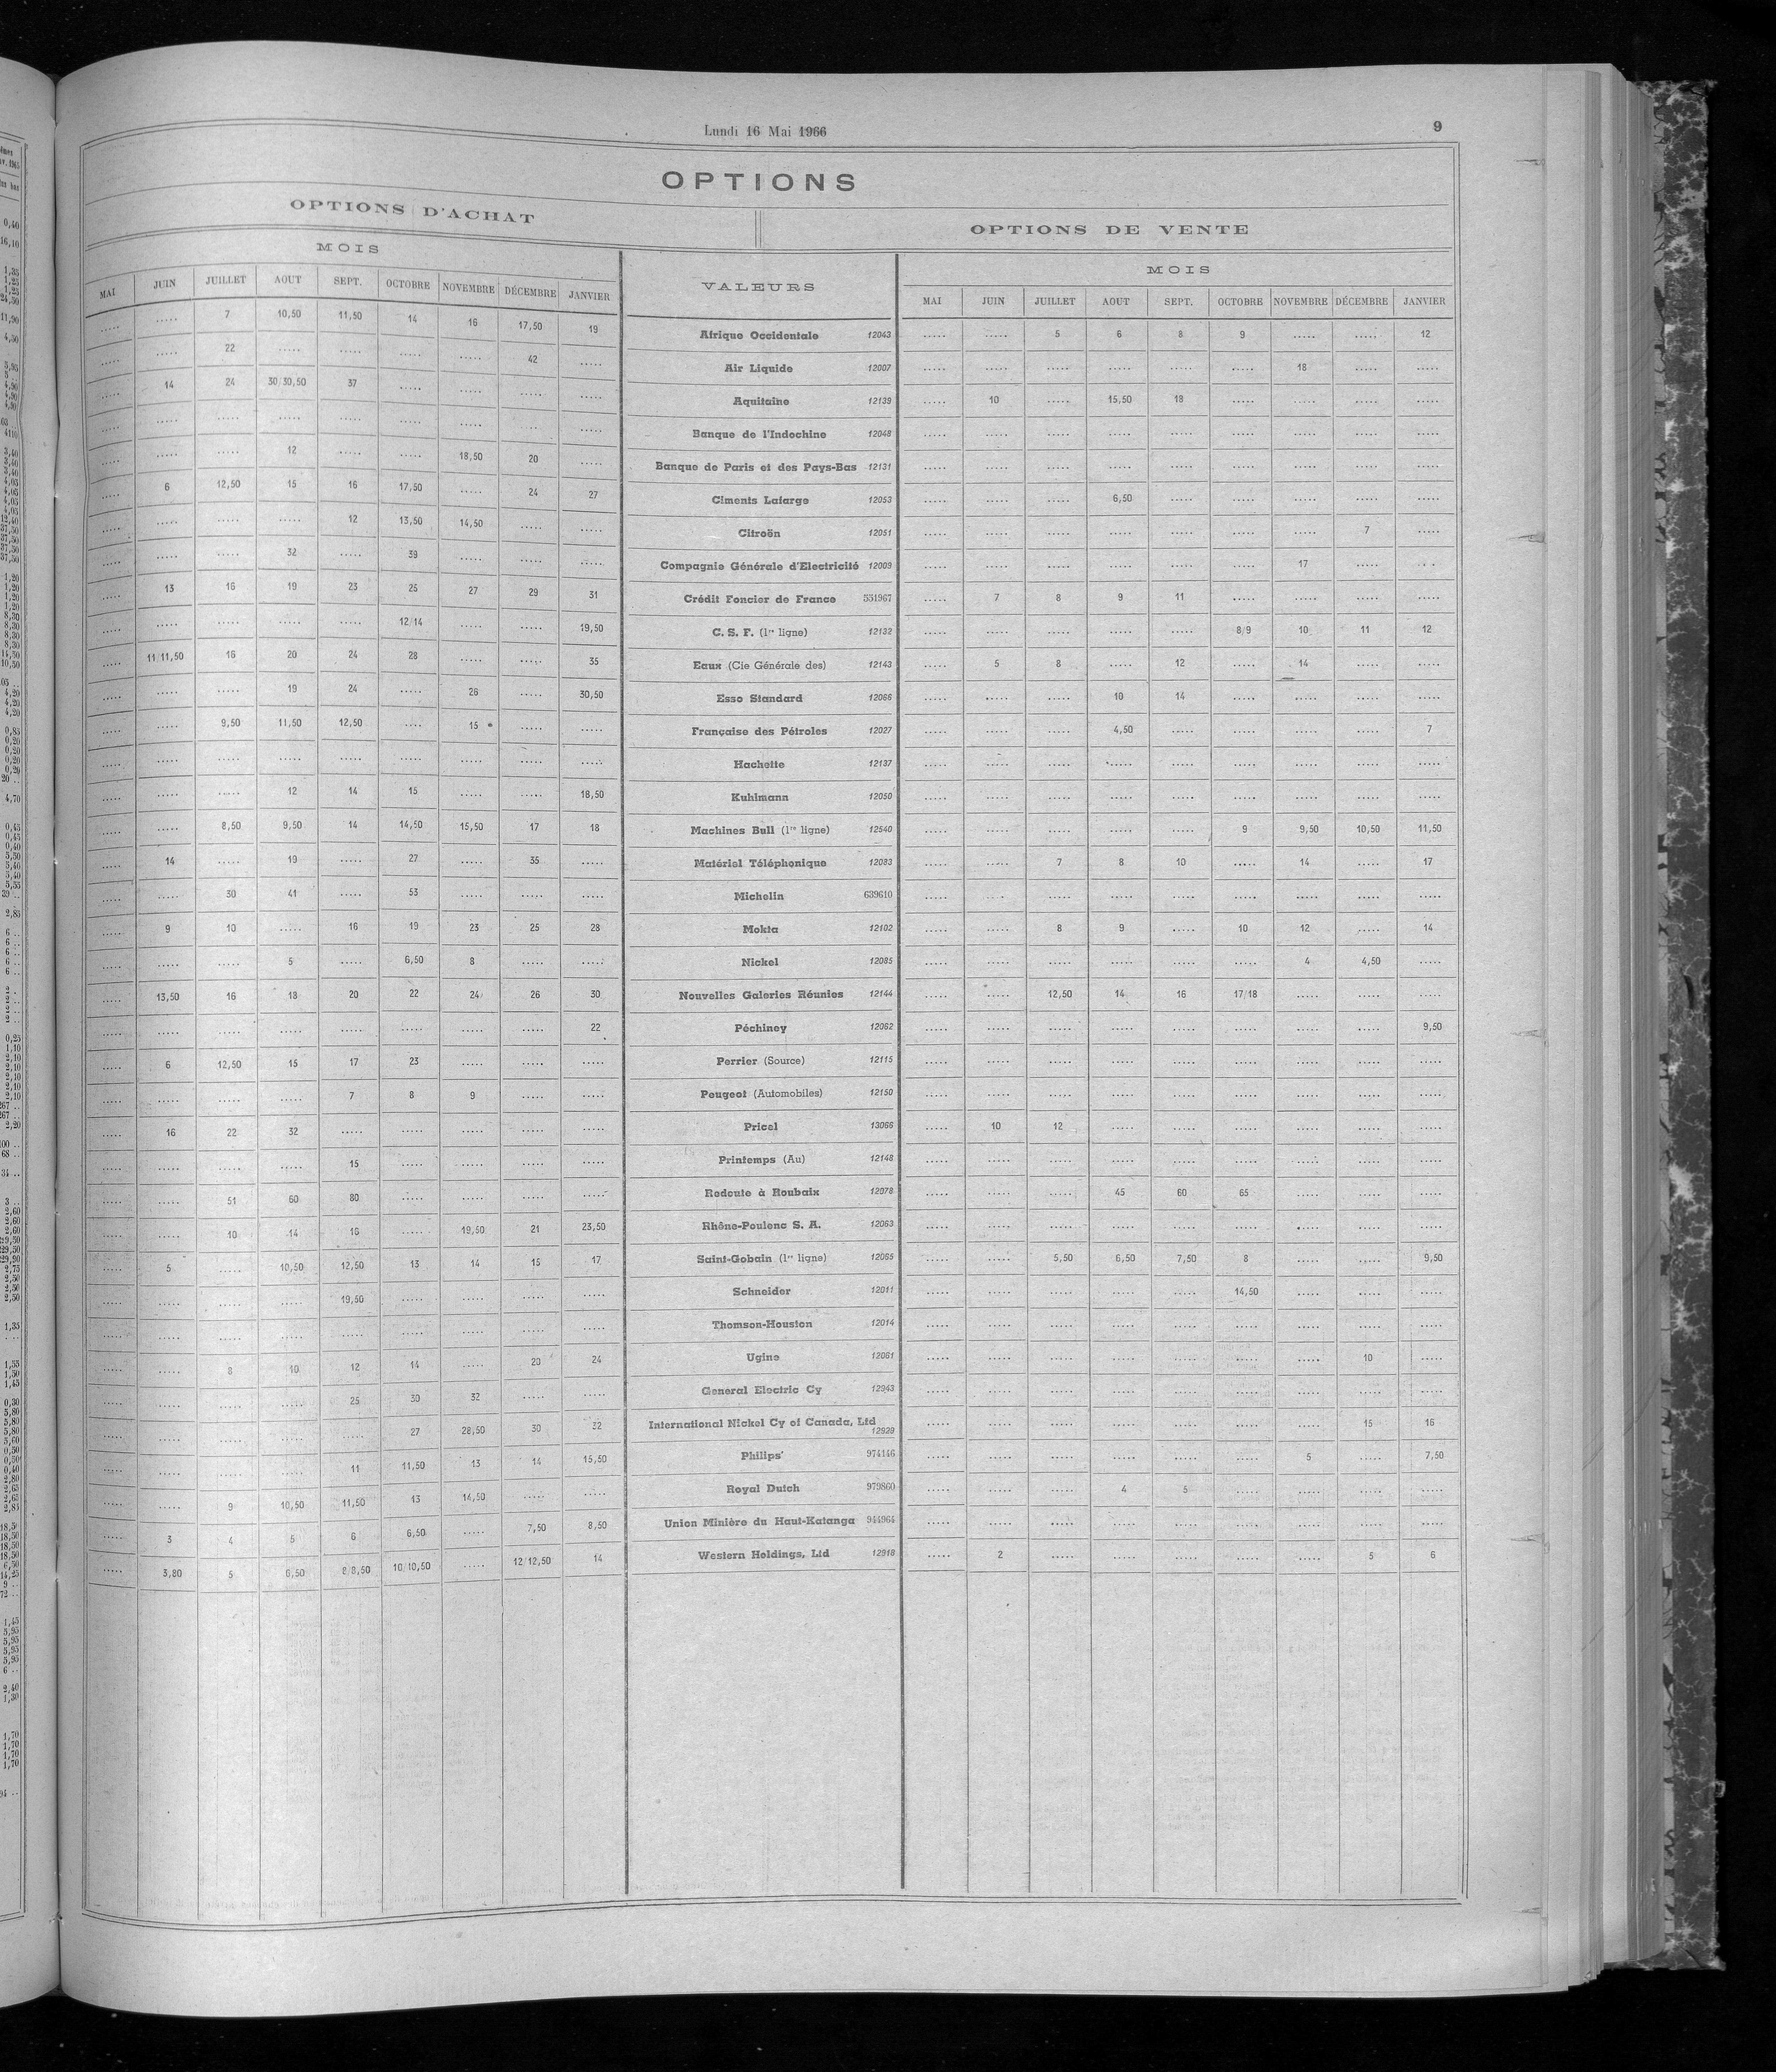 Lundi 16 Mai 1966 9
OPTIONS
OPTIONS D'ACHAT OPTIONS DE VENTE
MOIS VALEURS MOIS
MAI JUIN JUILLET AOUT SEPT. OCTOBRE NOVEMBRE DÉCEMBRE JANVIER MAI JUIN JUILLET AOUT SEPT. OCTOBRE NOVEMBRE DÉCEMBRE JANVIER
..... ..... 7 10,50 11,50 14 16 17,50 19 Afrique Occidentale 12043 ..... ..... 5 6 8 9 ..... ..... 12
..... ..... 22 ..... ..... ..... ..... 42 ..... Air Liquide 12007 ..... ..... ..... ..... ..... ..... 18 ..... .....
..... 14 24 30/30,50 37 ..... ..... ..... ..... Aquitaine 12139 ..... 10 ..... 15,50 18 ..... ..... ..... .....
..... ..... ..... ..... ..... ..... ..... ... ..... Banque de l'Indochine 12048 ..... ..... ..... ..... ..... ..... ..... ..... .....
..... ..... ..... 12 ..... ..... 18,50 20 ..... Banque de Paris et des Pays-Bas 12131 ..... ..... ..... ..... ..... ..... ..... ..... .....
..... 6 12,50 15 16 17,50 ..... 24 27 Ciments Lafarge 12053 ..... ..... ..... 6,50 ..... ..... ..... ..... .....
..... ..... ..... ..... 12 13,50 14,50 ..... ..... Citroën 12051 ..... ..... ..... ..... ..... ..... ..... 7 .....
..... ..... ..... 32 ..... 39 ..... ..... ..... Compagnie Générale d'Electricité 12009 ..... ..... ..... ..... ..... ..... 17 ..... ...
..... 13 16 19 23 25 27 29 31 Crédit Foncier de France 531967 ..... 7 8 9 11 ..... ..... ..... .....
..... ..... ..... ..... ..... 12/14 ..... ..... 19,50 C. S. F. (1re ligne) 12132 ..... ..... ..... ..... ..... 8/9 10 11 12
..... 11/11,50 16 20 24 28 ..... ..... 35 Eaux (Cie Générale des) 12143 ..... 5 8 ..... 12 ..... 14 ..... .....
..... ..... ..... 19 24 ..... 26 ..... 30,50 Esso Standard 12066 ..... ..... ..... 10 14 ..... ..... ..... .....
..... ..... 9,50 11,50 12,50 .... 15 • ..... ..... Française des Pétroles 12027 ..... ..... ..... 4,50 ..... ..... ..... ..... 7
..... ..... ..... ..... ..... ..... ..... ..... ..... Hachette 12137 ..... ..... ..... ..... ..... ..... ..... ..... .....
..... ..... ..... 12 14 15 ..... ..... 18,50 Kuhlmann 12050 ..... ..... ..... ..... ..... ..... ..... ..... .....
..... ..... 8,50 9,50 14 14,50 15,50 17 18 Machines Bull (1re ligne) 12540 ..... ..... ..... ..... ..... 9 9,50 10,50 11,50
..... 14 ..... 19 ..... 27 ..... 35 ..... Matériel Téléphonique 12083 ..... ..... 7 8 10 ..... 14 ..... 17
..... ..... 30 41 ..... 53 ..... ..... ..... Michelin 639610 ..... ..... ..... ..... ..... ..... ..... ..... .....
..... 9 10 ..... 16 19 23 25 28 Mokta 12102 ..... ..... 8 9 ..... 10 12 ..... 14
..... ..... ..... 5 ..... 6,50 8 ..... ..... Nickel 12085 ..... ..... ..... ..... ..... ..... 4 4,50 .....
..... 13,50 16 18 20 22 24 26 30 Nouvelles Galeries Réunies 12144 ..... ..... 12,50 14 16 17/18 ..... ..... .....
..... ..... ..... ..... ..... ..... ..... ..... 22 Péchiney 12062 ..... ..... ..... ..... ..... ..... ..... ..... 9,50
..... 6 12,50 15 17 23 ..... ..... ..... Perrier (Source) 12115 ..... ..... ..... ..... ..... ..... ..... ..... .....
..... ..... ..... ..... 7 8 9 ..... ..... Peugeot (Automobiles) 12150 ..... ..... ..... ..... ..... ..... ..... ..... .....
..... 16 22 32 ..... ..... ..... ..... ..... Pricel 13066 ..... 10 12 ..... ..... ..... ..... ..... .....
..... ..... ..... ..... 15 ..... ..... ..... ..... Printemps (Au) 12148 ..... ..... ..... ..... ..... ..... ..... ..... .....
..... ..... 51 60 80 ..... ..... ..... ..... Redoute à Roubaix 12078 ..... ..... ..... 45 60 65 ..... ..... .....
..... ..... 10 14 16 ..... 19,50 21 23,50 Rhône-Poulenc S. A. 12063 ..... ..... ..... ..... ..... ..... ..... ..... .....
..... 5 ..... 10,50 12,50 13 14 15 17 Saint-Gobain (1re ligne) 12065 ..... ..... 5,50 6,50 7,50 8 ..... ..... 9,50
..... ..... ..... ..... 19,50 ..... ..... ..... ..... Schneider 12011 ..... ..... ..... ..... ..... 14,50 ..... ..... .....
..... ..... ..... ..... ..... ..... ..... ..... ..... Thomson-Houston 12014 ..... ..... ..... ..... ..... ..... ..... ..... .....
..... ..... 8 10 12 14 ..... 20 24 Ugine 12061 ..... ..... ..... ..... ..... ..... ..... 10 .....
..... ..... ..... ..... 25 30 32 ..... ..... General Electric Cy 12943 ..... ..... ..... ..... ..... ..... ..... ..... .....
..... ..... ..... ..... ..... 27 28,50 30 32 International Nickel Cy of Canada, Ltd 12929 ..... ..... ..... ..... ..... ..... ..... 15 16
..... ..... ..... ..... 11 11,50 13 14 15,50 Philips' 974146 ..... ..... ..... ..... ..... ..... 5 ..... 7,50
..... ..... 9 10,50 11,50 13 14,50 ..... ..... Royal Dutch 979860 ..... ..... ..... 4 5 ..... ..... ..... .....
..... 3 4 5 6 6,50 ..... 7,50 8,50 Union Minière du Haut-Katanga 944964 ..... ..... ..... ..... ..... ..... ..... ..... .....
..... 3,80 5 6,50 8/8,50 10/10,50 ..... 12/12,50 14 Western Holdings, Ltd 12918 ..... 2 ..... ..... ..... ..... ..... 5 6